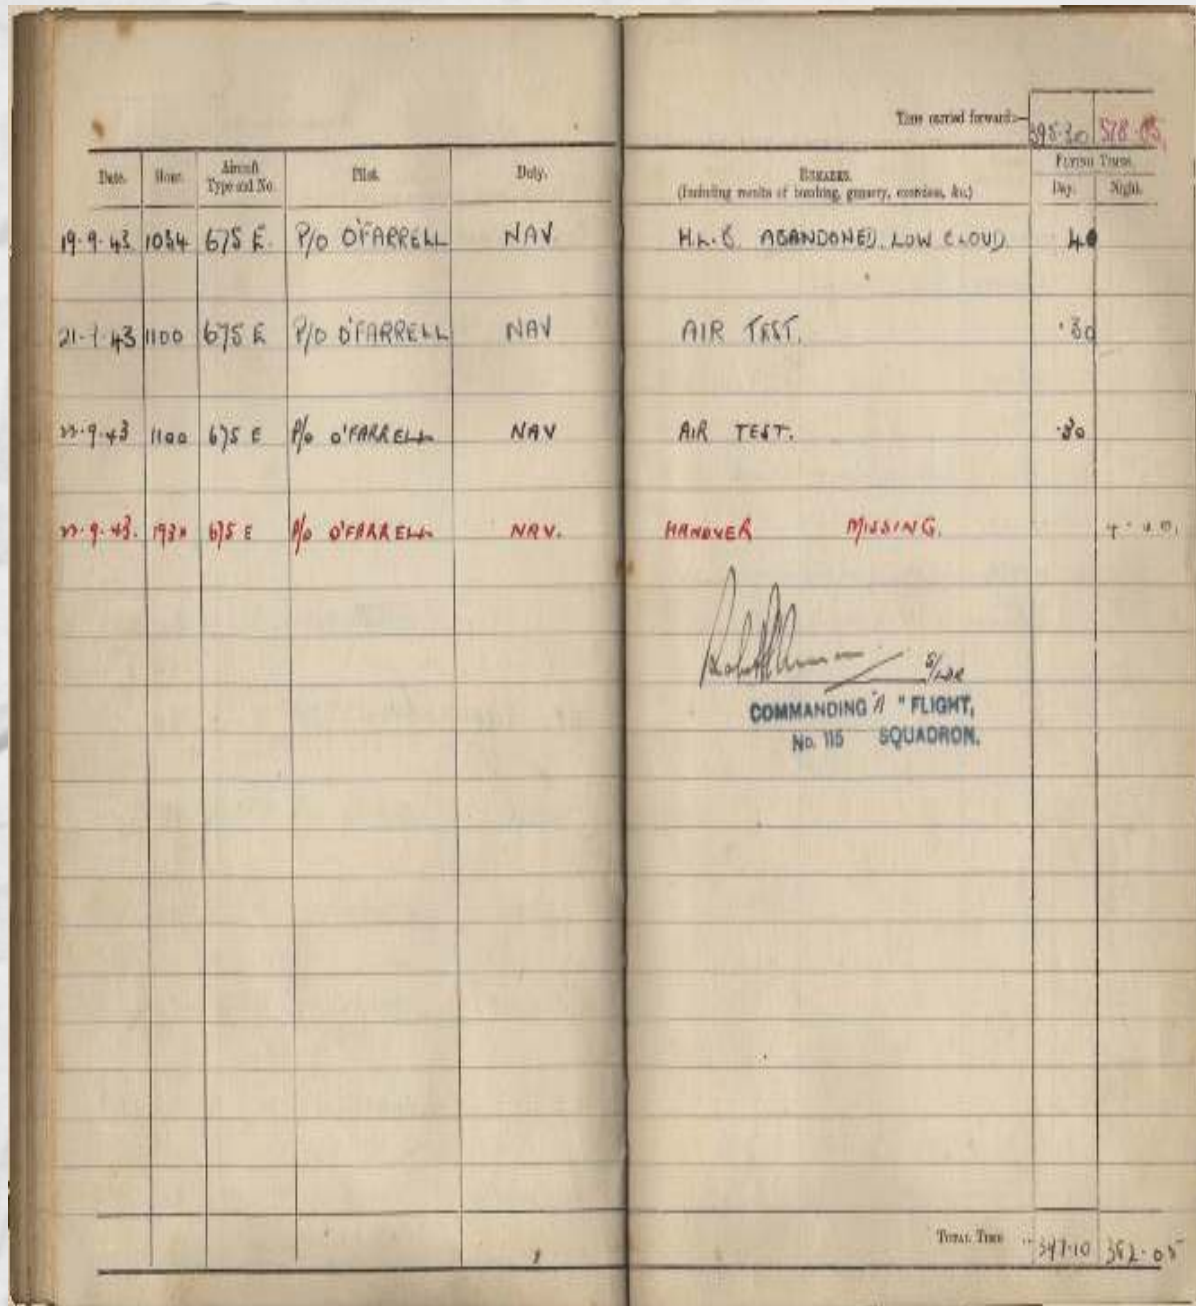 Time carried forward:— 395·30
Date. Hour. Aircraft Type and No. Pilot. Duty. REMARKS. (Including results of bombing, gunnery, exercises, &c.) FLYING TIMES. Day. Night.
19·9·43 1054 675 E. P/O O'FARRELL NAV ABANDONED. LOW CLOUD 40
43 1100 675 E P/O O'FARRELL NAV AIR TEST. ·30
9·43 1100 675 E P/o O'FARRELL NAV AIR TEST. ·30
9·43. 675 E P/o O'FARRELL NAV. HANOVER MISSING.
S/LDR
COMMANDING "A" FLIGHT,
No. 115 SQUADRON.
TOTAL TIME 347·10 362·05